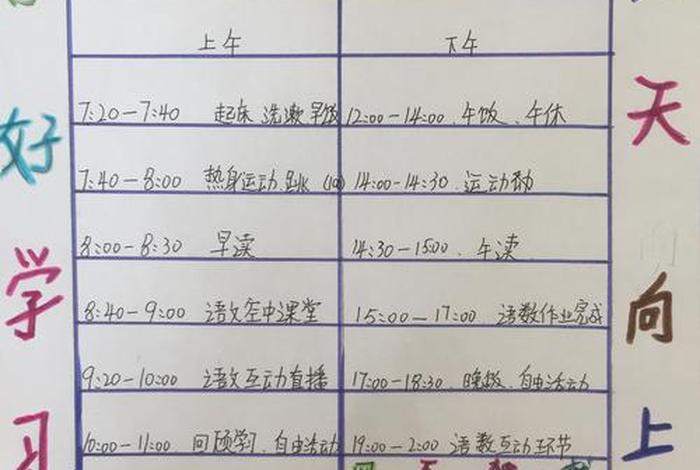 上午 下午
7:20-7:40 起床 洗漱 早饭 12:00-14:00、午饭、午休
7:40-8:00 热身运动 跳 (100 14:00-14:30、运动
8:00-8:30 早读 14:30-15:00、午读
8:40-9:00 语文空中课堂 15:00-17:00 语数作业完成
9:20-10:00 语文互动直播 17:00-18:30、晚饭、自由活动
10:00-11:00 回顾学习、自由活动 19:00-2:00 语数互动环节
好
学
习
天
向
上